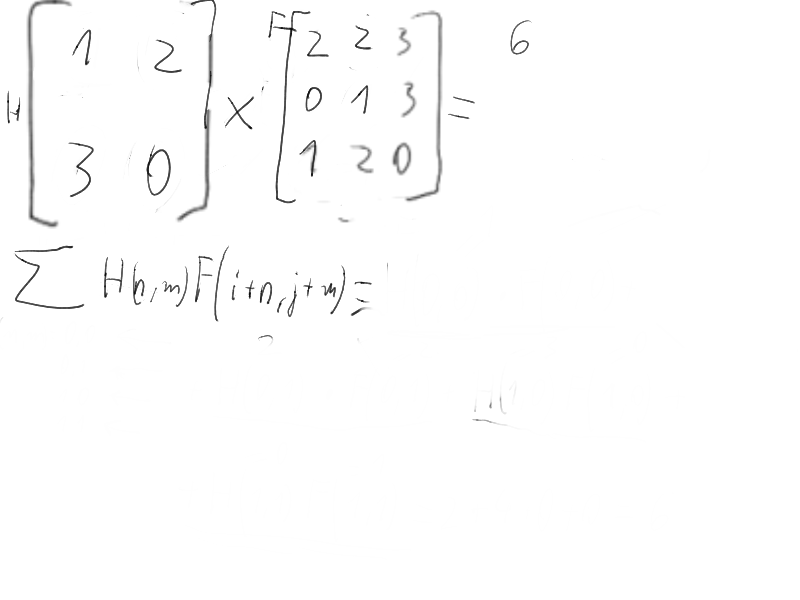 H [1 2 3 0] × F [2 2 3 0 1 3 1 2 0] = 6
∑ H(n,m)F(i+n,j+m) =